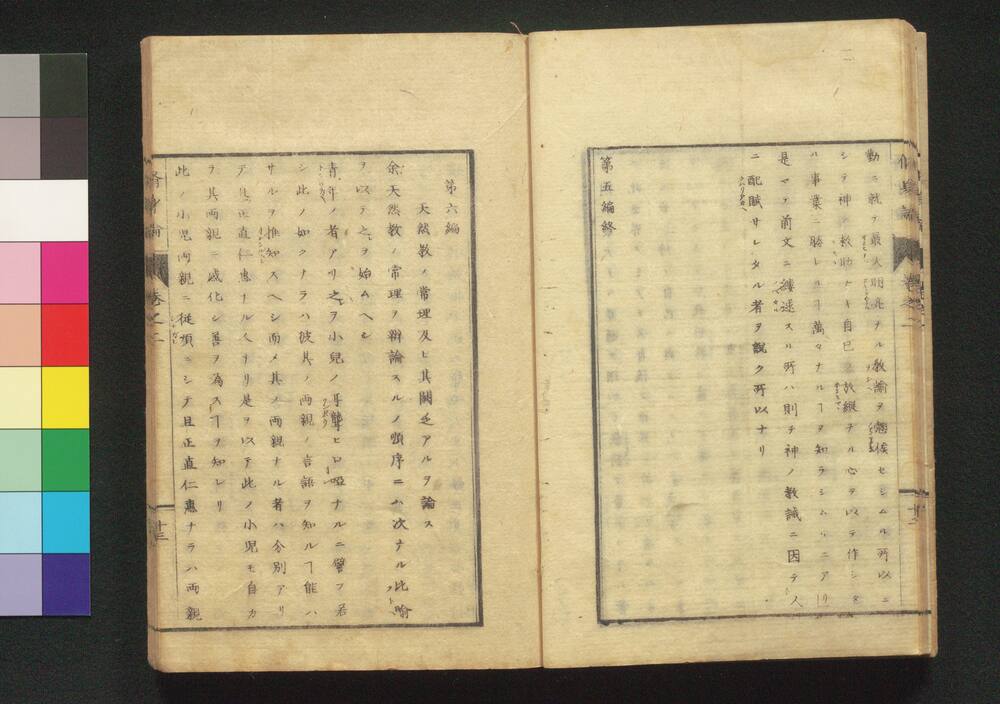 勸ニ就ヲ最大明亮ナル教諭ヲ懇俟セシムル所以ニ
シテ神ノ救助ナキ自已ノ放縱ナル心ヲ以テ作シタ
ル事業ニ勝レルヿ萬々ナルヿヲ知ラシムルニアリ
是マテ前文ニ縷述スル所ハ則チ神ノ教誡ニ因テ人
ニ配賦サレタル者ヲ説ク所以ナリ
第五編終
第六編
天然教ノ常理及ヒ其闕乏アルヲ論ス
余天然教ノ常理ヲ辯論スルノ順序ニハ次ナル比喻
ヲ以テ之ヲ始ムヘシ
青年ノ者アリ之ヲ小兒ノ耳聾ヒ口啞ナルニ譬フ若
シ此ノ如クナラハ彼其ノ兩親ノ言語ヲ知ルヿ能ハ
サルヲ推知スヘシ而メ其ノ兩親ナル者ハ分別アリ
アル正直仁惠ナル人ナリ是ヲ以テ此ノ小児モ自カ
ラ其兩親ニ感化シ善ヲ為スヿヲ知レリ
此ノ小児兩親ニ従順ニシテ且正直仁惠ナラハ兩親
脩身論
卷之二
十三